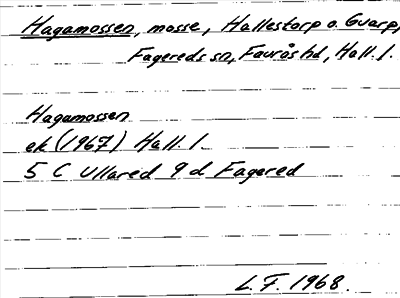 Hagamossen, mosse, Hallestorp o. Guarp,
Fagereds sn, Faurås hd, Hall. l.
Hagamossen
ek (1967) Hall. l.
5 C Ullared 9 d Fagered
L.F. 1968.